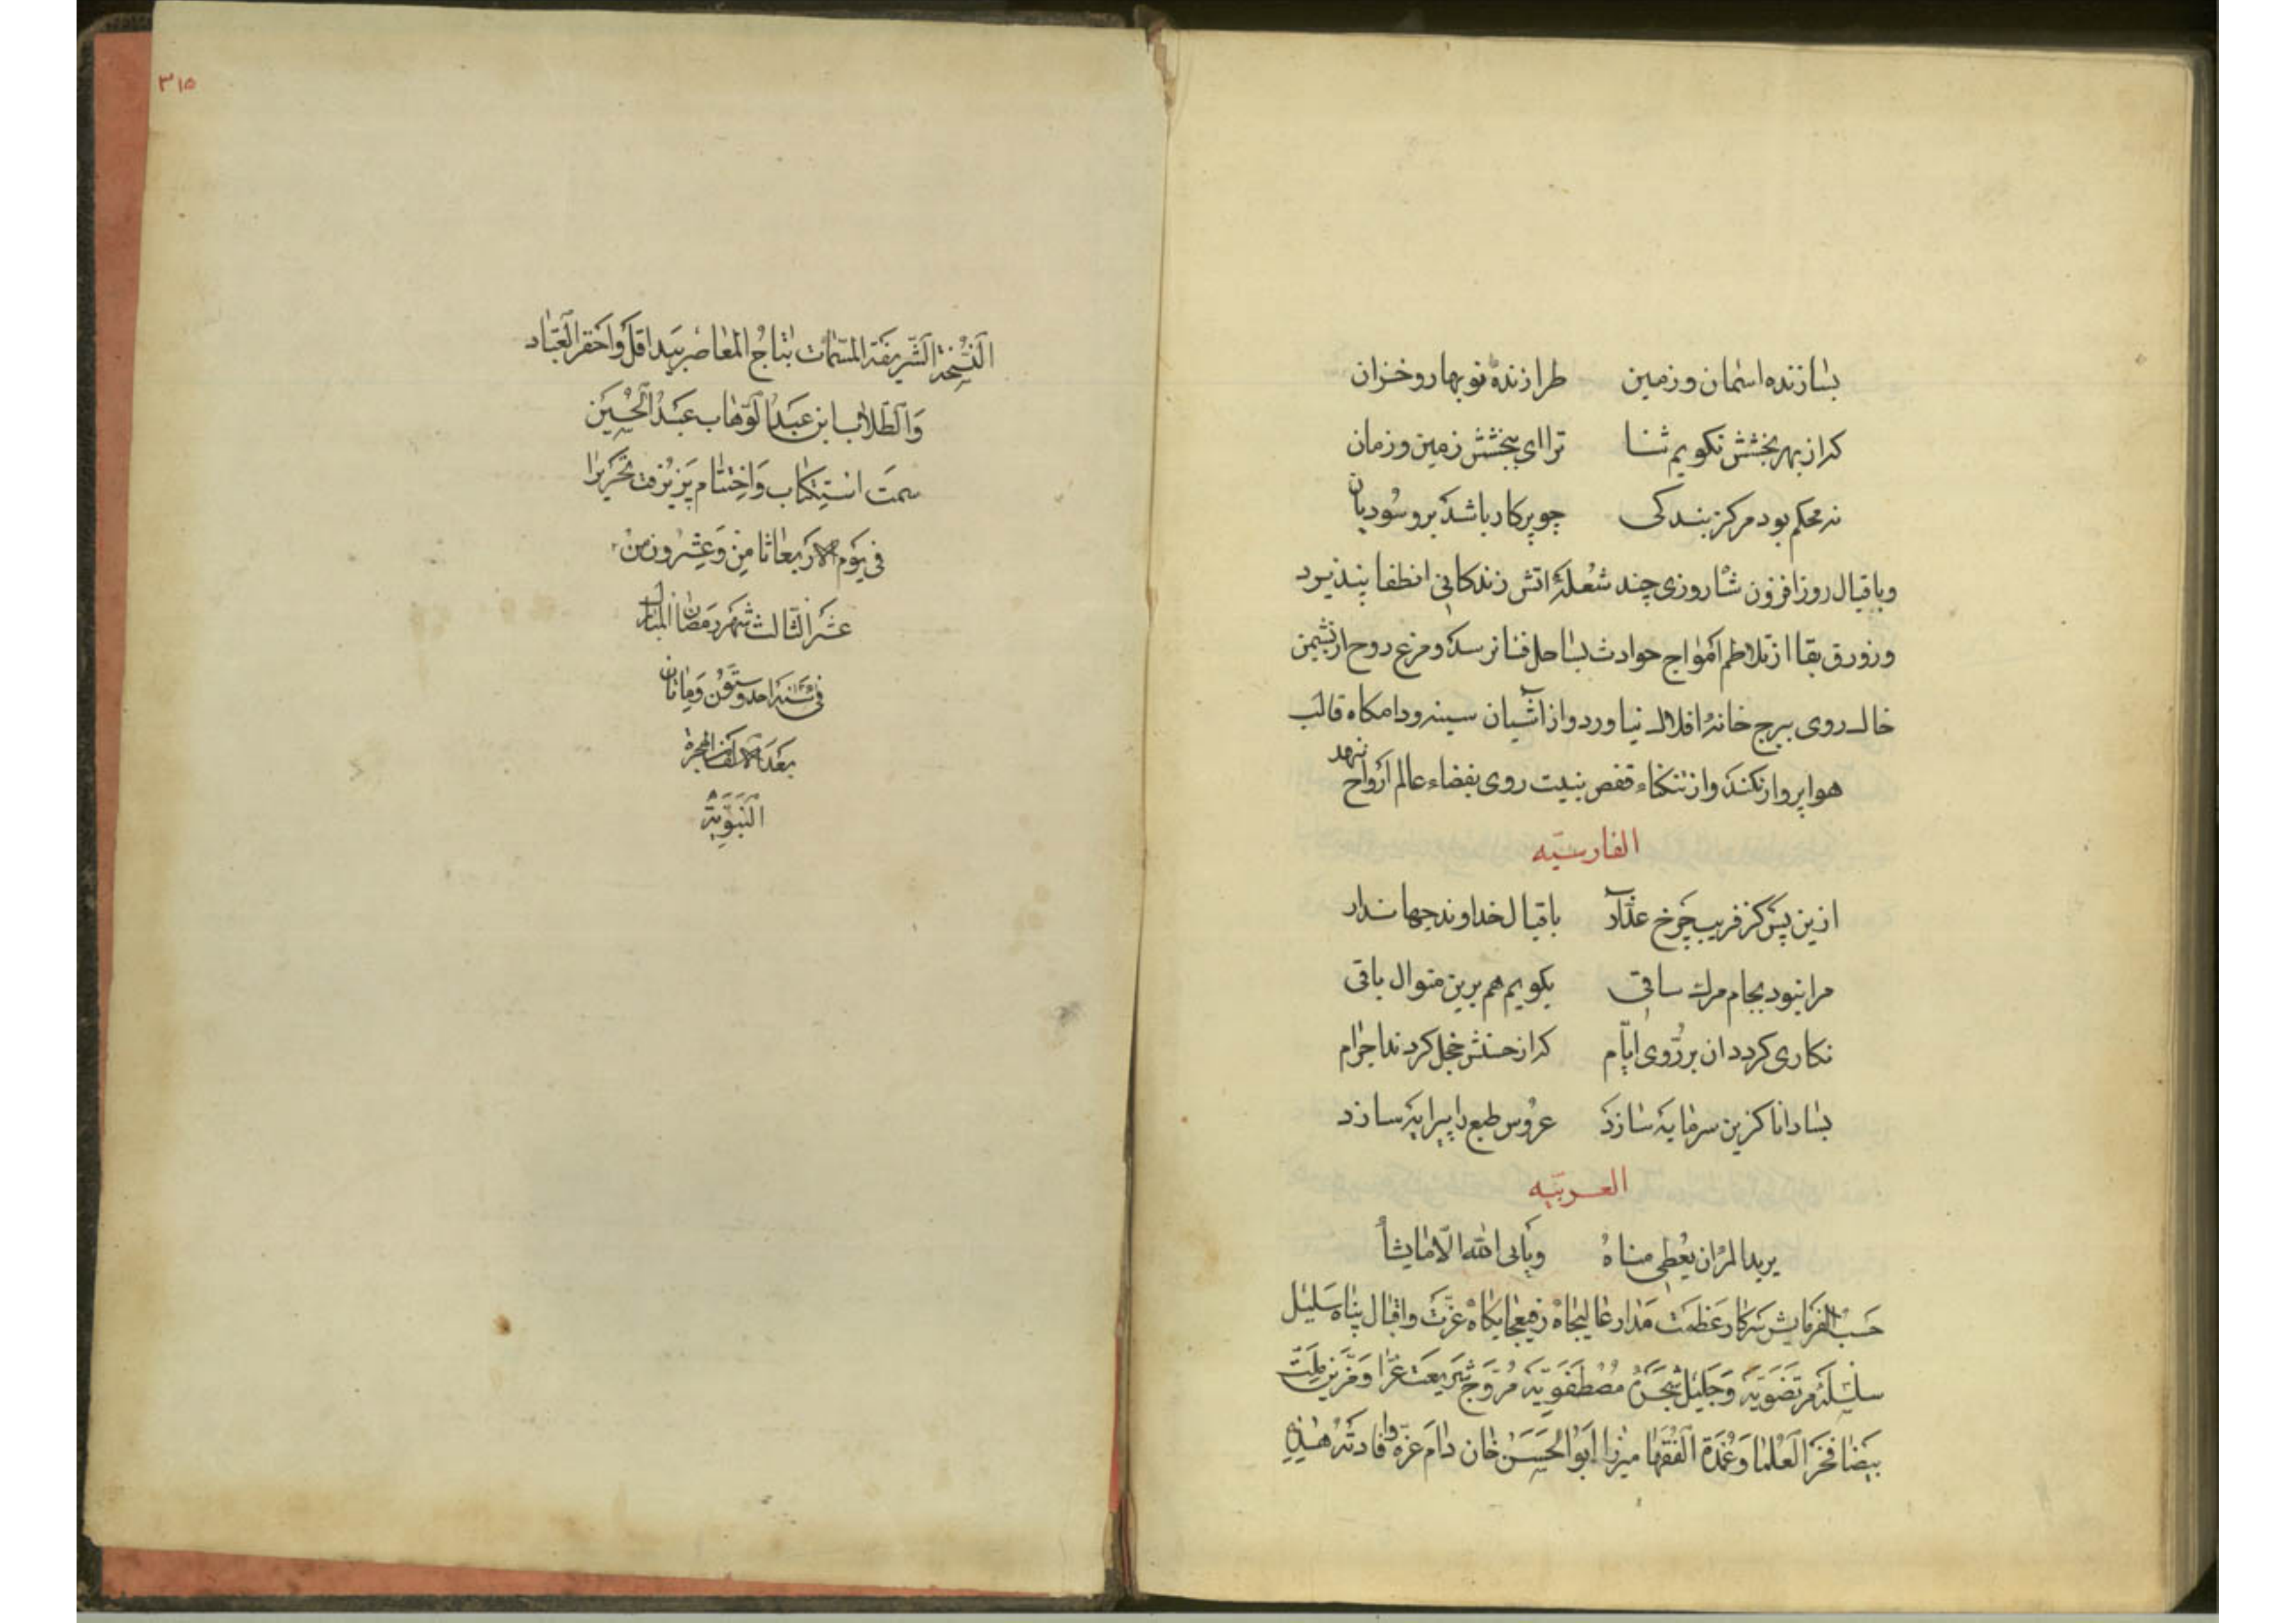 بسازنده اسمان و زمین طرازندهٔ نوبهار و خزان
که از بهر بخشش نکویم ثنا ترا ای ببخشش زمین و زمان
نه محکم بود مرکز بندکی چو پرکار باشد برو سودیان
و باقبال روزافزون شاروزی چند شعلهٔ اتش زندکانی انطفا پذیرد
و زورق بقا از تلاطم امواج حوادث بساحل فنا نرسد و مرغ روح از نشیمن
خاك روی ببرج خانهٔ افلاك نیاورد و از اشیان سینه و دامکاه قالب
هوا پرواز نکند و از تنکناء قفص بنیت روی بفضاء عالم ارواح ننهد
الفارسیّه
ازین پس کز فریب چرخ غدّار باقبال خداوند جهاندار
مرا نبود بجام مرك ساقی بکویم هم برین منوال باقی
نکاری کردد ان بر روی ایّام که از حسنش خجل کردند اجرام
بسا دانا کزین سرمایه سازد عروس طبع را پیرایه سازد
العربیّه
یرید المرأ ان یعطی مناهُ ویابی الله الّا ما یشأ
حَسْبُ الفرمایش سَرکار عَظمَت مَدار عالیجاه رفیعجایکاه عزّت و اقبال پناه سَلیل
سِلسِلَهٔ مرتضَویّه وَ جَلیل شجَرَهٔ مُصْطَفَویّه مُرَوّج شَریعَت غرّا وَ مُزَیّن مِلّت
بیضا فخرَ العُلما وَ عُمدَة الفُقها میرزا ابوُالحَسَن خان دامَ عزّه و افادتهُ هذِهِ
۳۱۵
النُّسْخَة الشّریفَة المسَمّات بتاجُ المعاصر بیَد اقلّ وَاحْقر العِباد
وَالطّلاب ابن عَبدُالوَهّاب عَبدُالحُسَین
سمَت استِکتاب وَاختتام پَزیرُفت تحریراً
فی یَوم الاربعا ثامِن وَ عِشرون من
عشر الثالث شهر رَمَضان المبارك
فی سَنه احد وستون وَماتان
بَعدَ الالف الهجرة
النّبَوّیة